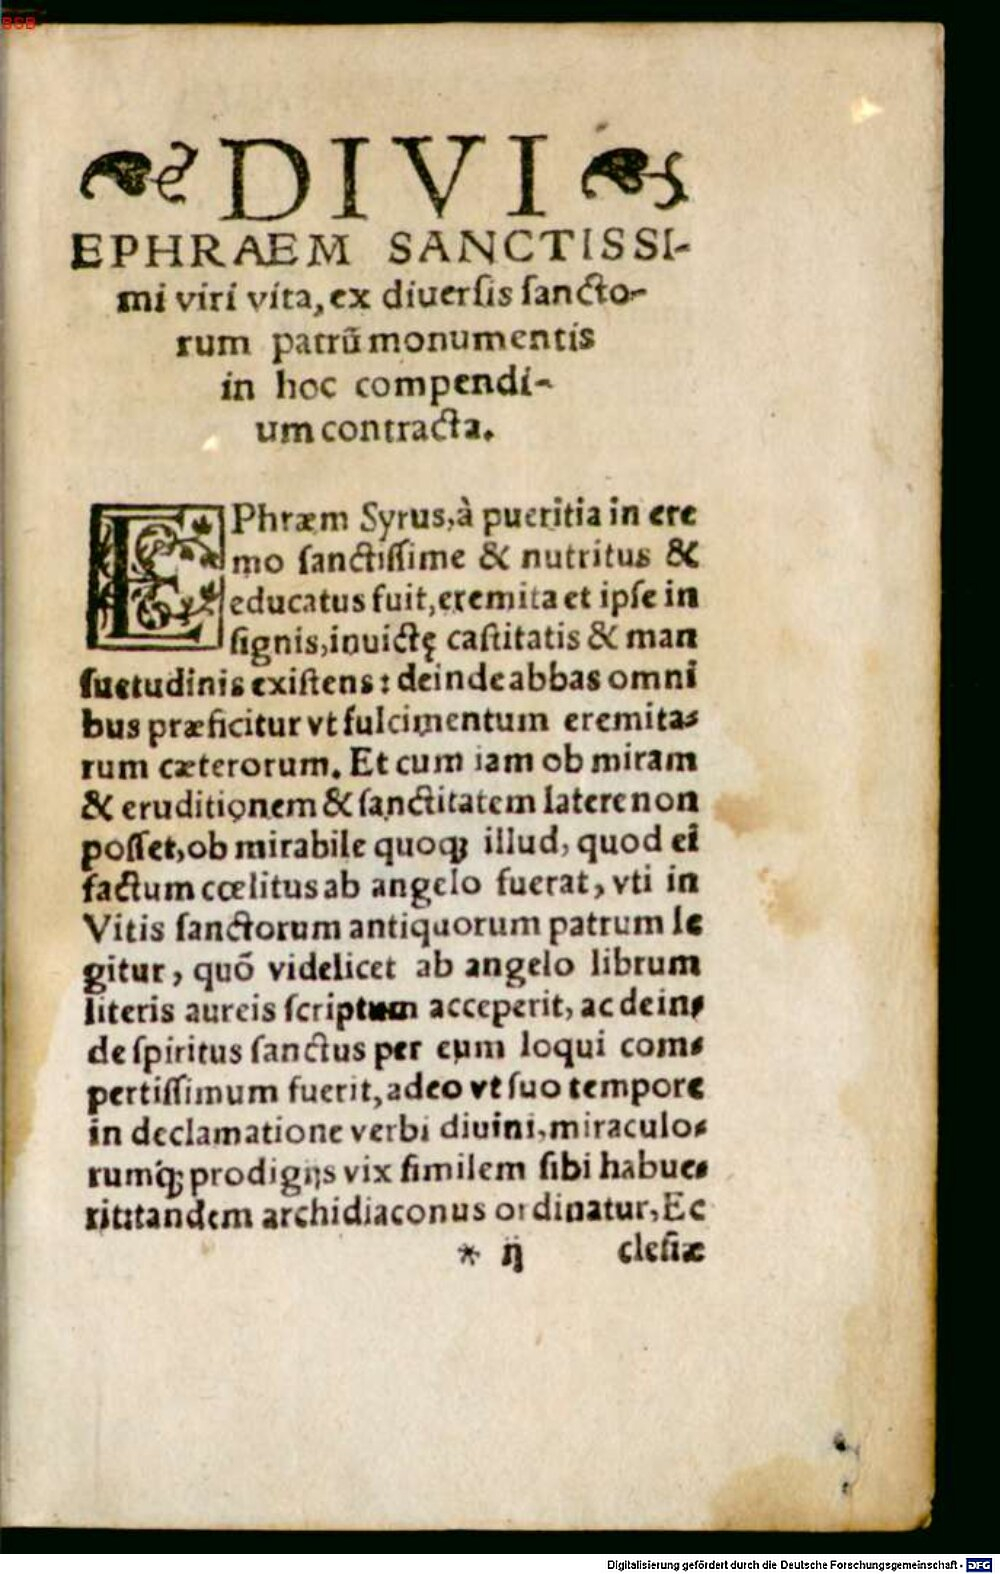 BSB
DIVI
EPHRAEM SANCTISSI-
mi viri vita, ex diuersis sancto-
rum patrũ monumentis
in hoc compendi-
um contracta.
EPhræm Syrus, à pueritia in ere
mo sanctissime & nutritus &
educatus fuit, eremita et ipse in
signis, inuictę castitatis & man
suetudinis existens: deinde abbas omni
bus præficitur vt fulcimentum eremita-
rum cæterorum. Et cum iam ob miram
& eruditionem & sanctitatem latere non
posset, ob mirabile quoq; illud, quod ei
factum cœlitus ab angelo fuerat, vti in
Vitis sanctorum antiquorum patrum le
gitur, quō videlicet ab angelo librum
literis aureis scriptum acceperit, ac dein-
de spiritus sanctus per eum loqui com-
pertissimum fuerit, adeo vt suo tempore
in declamatione verbi diuini, miraculo-
rumq́; prodigijs vix similem sibi habue-
rit: tandem archidiaconus ordinatur, Ec
* ij clesiæ
Digitalisierung gefördert durch die Deutsche Forschungsgemeinschaft - DFG